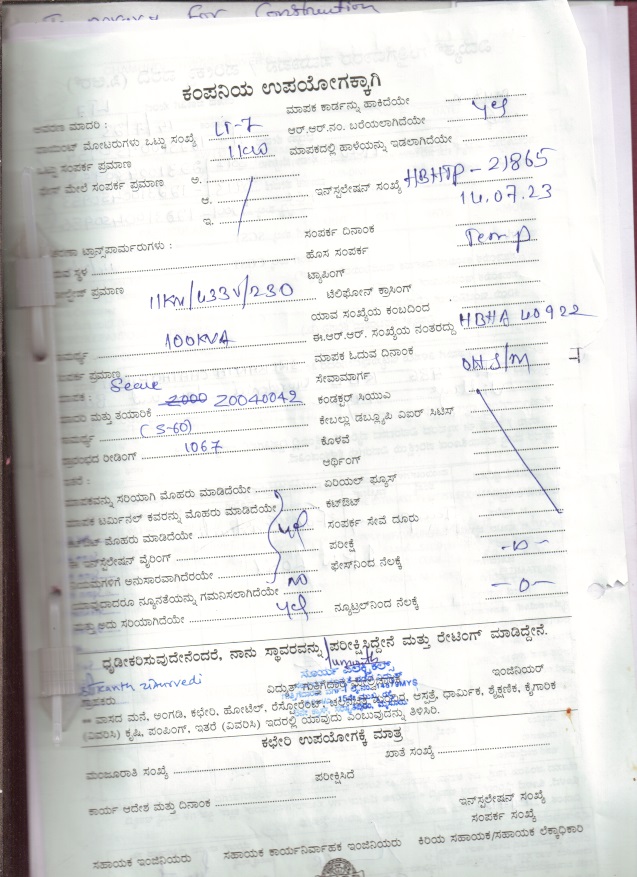 For Construction
ಕಂಪನಿಯ ಉಪಯೋಗಕ್ಕಾಗಿ
ಮಾದರಿ : LT-7 ಮಾಪಕ ಕಾರ್ಡನ್ನು ಹಾಕಿದೆಯೇ yes
ಮೋಟರುಗಳು ಒಟ್ಟು ಸಂಖ್ಯೆ ಆರ್.ಆರ್.ನಂ. ಬರೆಯಲಾಗಿದೆಯೇ
ಒಟ್ಟು ಸಂಪರ್ಕ ಪ್ರಮಾಣ 11KW ಮಾಪಕದಲ್ಲಿ ಹಾಳೆಯನ್ನು ಇಡಲಾಗಿದೆಯೇ
ಮೇಲೆ ಸಂಪರ್ಕ ಪ್ರಮಾಣ ಅ.
ಆ. ಇನ್‌ಸ್ಟಲೇಷನ್ ಸಂಖ್ಯೆ HBHTP - 21865
ಇ. 14.07.23
ಟ್ರಾನ್ಸ್‌ಪಾರ್ಮರುಗಳು : ಸಂಪರ್ಕ ದಿನಾಂಕ
ಸ್ಥಳ ಹೊಸ ಸಂಪರ್ಕ Temp
ಟ್ಯಾಪಿಂಗ್
ಪ್ರಮಾಣ 11KV/433V/230 ಟೆಲಿಫೋನ್ ಕ್ರಾಸಿಂಗ್
ಯಾವ ಸಂಖ್ಯೆಯ ಕಂಬದಿಂದ
100KVA ಈ.ಆರ್.ಆರ್. ಸಂಖ್ಯೆಯ ನಂತರದ್ದು HBHA 40922
ಪ್ರಮಾಣ ಮಾಪಕ ಓದುವ ದಿನಾಂಕ
ಮಾಪಕ : Secure ಸೇವಾಮಾರ್ಗ OH S/M
ಮತ್ತು ತಯಾರಿಕೆ Z0040042 ಕಂಡಕ್ಟರ್ ಸಿಯುಎ
(5-60) ಕೇಬಲ್ಲು ಡಬ್ಲ್ಯೂಪಿ ವಿಐರ್ ಸಿಟಿಸ್
ಪ್ರಾರಂಭದ ರೀಡಿಂಗ್ 1067 ಕೊಳವೆ
ಇತರೆ : ಆರ್ಥಿಂಗ್
ಮಾಪಕವನ್ನು ಸರಿಯಾಗಿ ಮೊಹರು ಮಾಡಿದೆಯೇ ಏರಿಯಲ್ ಫ್ಯೂಸ್
ಮಾಪಕ ಟರ್ಮಿನಲ್ ಕವರನ್ನು ಮೊಹರು ಮಾಡಿದೆಯೇ ಕಟ್‌ಔಟ್
ಮೊಹರು ಮಾಡಿದೆಯೇ yes ಸಂಪರ್ಕ ಸೇವೆ ದೂರು
ಇನ್‌ಸ್ಟಲೇಷನ್ ವೈರಿಂಗ್ ಪರೀಕ್ಷೆ
ನಿಯಮಗಳಿಗೆ ಅನುಸಾರವಾಗಿದೆರಯೇ ಫೇಸ್‌ನಿಂದ ನೆಲಕ್ಕೆ -0-
ಯಾವುದಾದರೂ ನ್ಯೂನತೆಯನ್ನು ಗಮನಿಸಲಾಗಿದೆಯೇ NO
ಮತ್ತು ಅದು ಸರಿಯಾಗಿದೆಯೇ yes ನ್ಯೂಟ್ರಲ್‌ನಿಂದ ನೆಲಕ್ಕೆ -0-
ಧೃಢೀಕರಿಸುವುದೇನೆಂದರೆ, ನಾನು ಸ್ಥಾವರವನ್ನು ಪರೀಕ್ಷಿಸಿದ್ದೇನೆ ಮತ್ತು ರೇಟಿಂಗ್ ಮಾಡಿದ್ದೇನೆ.
ಗ್ರಾಹಕರು ವಿದ್ಯುತ್ ಗುತ್ತಿಗೆದಾರ ಇಂಜಿನಿಯರ್
** ವಾಸದ ಮನೆ, ಅಂಗಡಿ, ಕಛೇರಿ, ಹೋಟೆಲ್, ರೆಸ್ಟೋರೆಂಟ್, ಆಸ್ಪತ್ರೆ, ಧಾರ್ಮಿಕ, ಶೈಕ್ಷಣಿಕ, ಕೈಗಾರಿಕ
(ವಿವರಿಸಿ) ಕೃಷಿ, ಪಂಪಿಂಗ್, ಇತರೆ (ವಿವರಿಸಿ) ಇದರಲ್ಲಿ ಯಾವುದು ಎಂಬುವುದನ್ನು ತಿಳಿಸಿರಿ.
ಕಛೇರಿ ಉಪಯೋಗಕ್ಕೆ ಮಾತ್ರ
ಮಂಜೂರಾತಿ ಸಂಖ್ಯೆ ಖಾತೆ ಸಂಖ್ಯೆ
ಪರೀಕ್ಷಿಸಿದೆ
ಕಾರ್ಯ ಆದೇಶ ಮತ್ತು ದಿನಾಂಕ ಇನ್‌ಸ್ಟಲೇಷನ್ ಸಂಖ್ಯೆ
ಸಂಪರ್ಕ ಸಂಖ್ಯೆ
ಸಹಾಯಕ ಇಂಜಿನಿಯರು ಸಹಾಯಕ ಕಾರ್ಯನಿರ್ವಾಹಕ ಇಂಜಿನಿಯರು ಕಿರಿಯ ಸಹಾಯಕ/ಸಹಾಯಕ ಲೆಕ್ಕಾಧಿಕಾರಿ